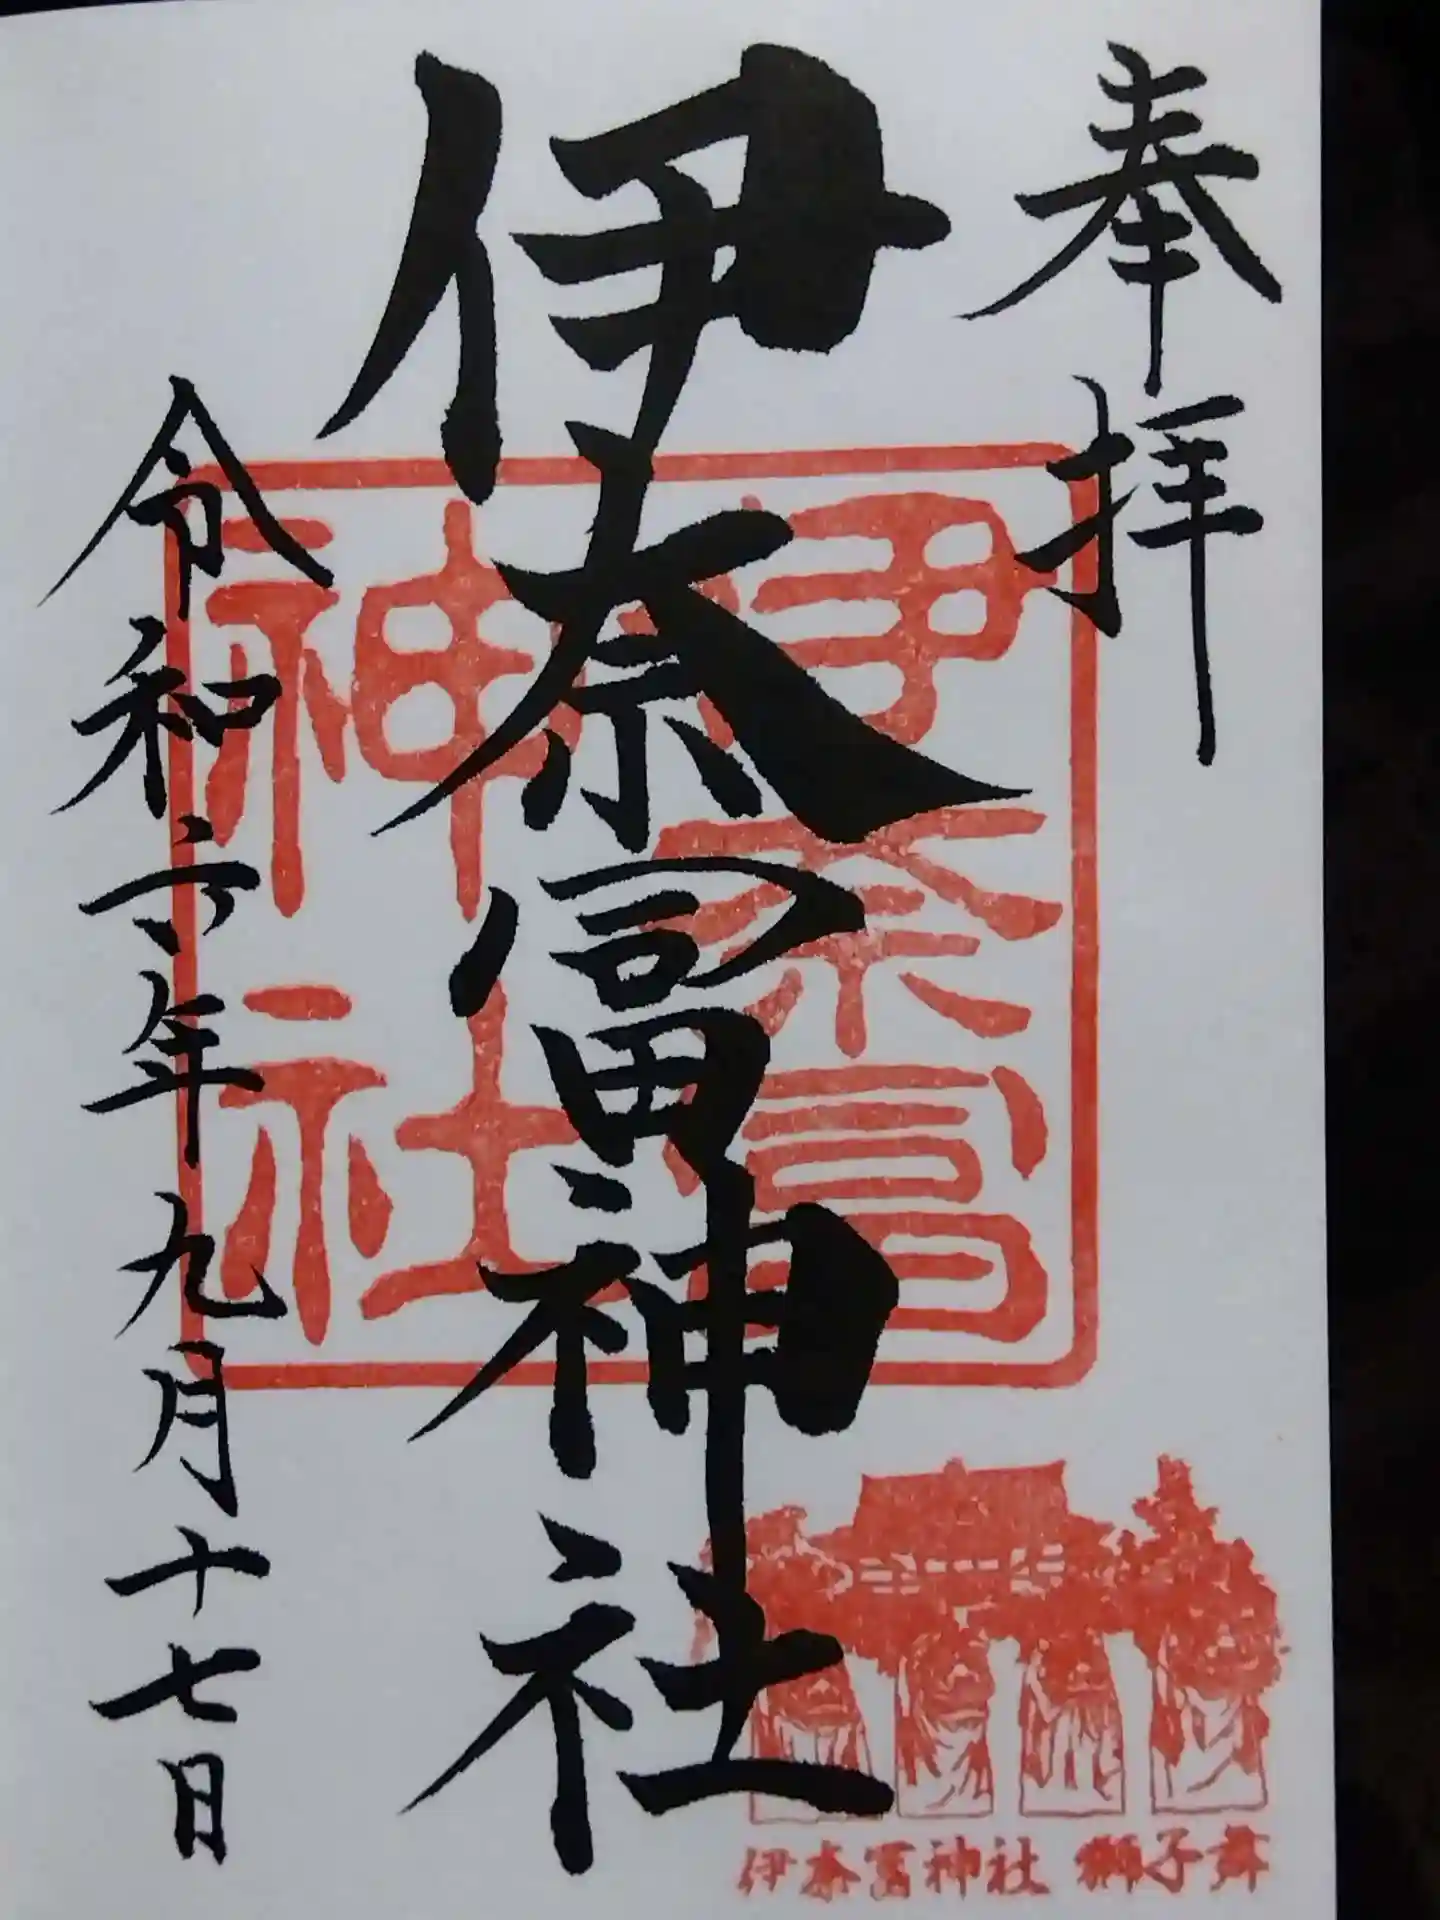 奉拝
伊奈冨神社
伊奈冨神社
令和六年九月十七日
伊奈冨神社 獅子舞